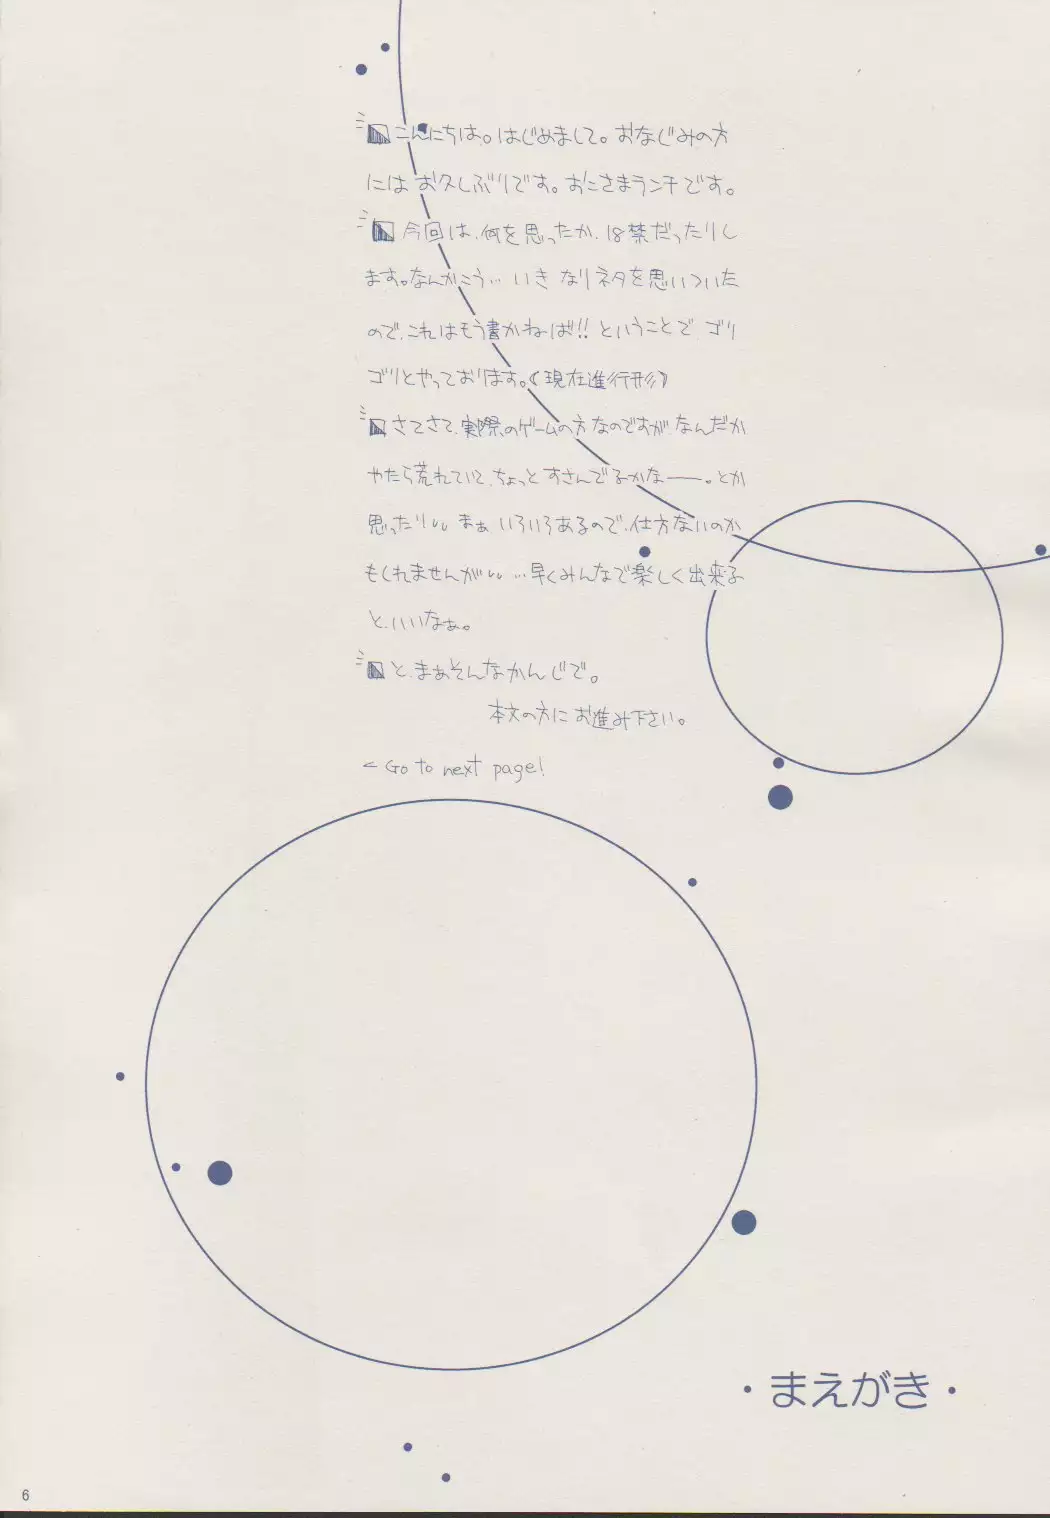 こんにちは。はじめまして。おなじみの方
には お久しぶりです。おこさまランチです。
今回は、何を思ったか、18禁だったりし
ます。なんかこう… いきなりネタを思いついた
ので、これはもう書かねば!! ということで、ゴリ
ゴリとやっております。(現在進行形)
さてさて、実際のゲームの方なのですが、なんだか
やたら荒れていて、ちょっとすさんでるかなー。とか
思ったり… まぁ いろいろあるので、仕方ないのか
もしれませんが… …早くみんなで楽しく出来る
と、いいなぁ。
と、まぁそんなかんじで。
本文の方に お進み下さい。
< Go to next page!
・まえがき・
6